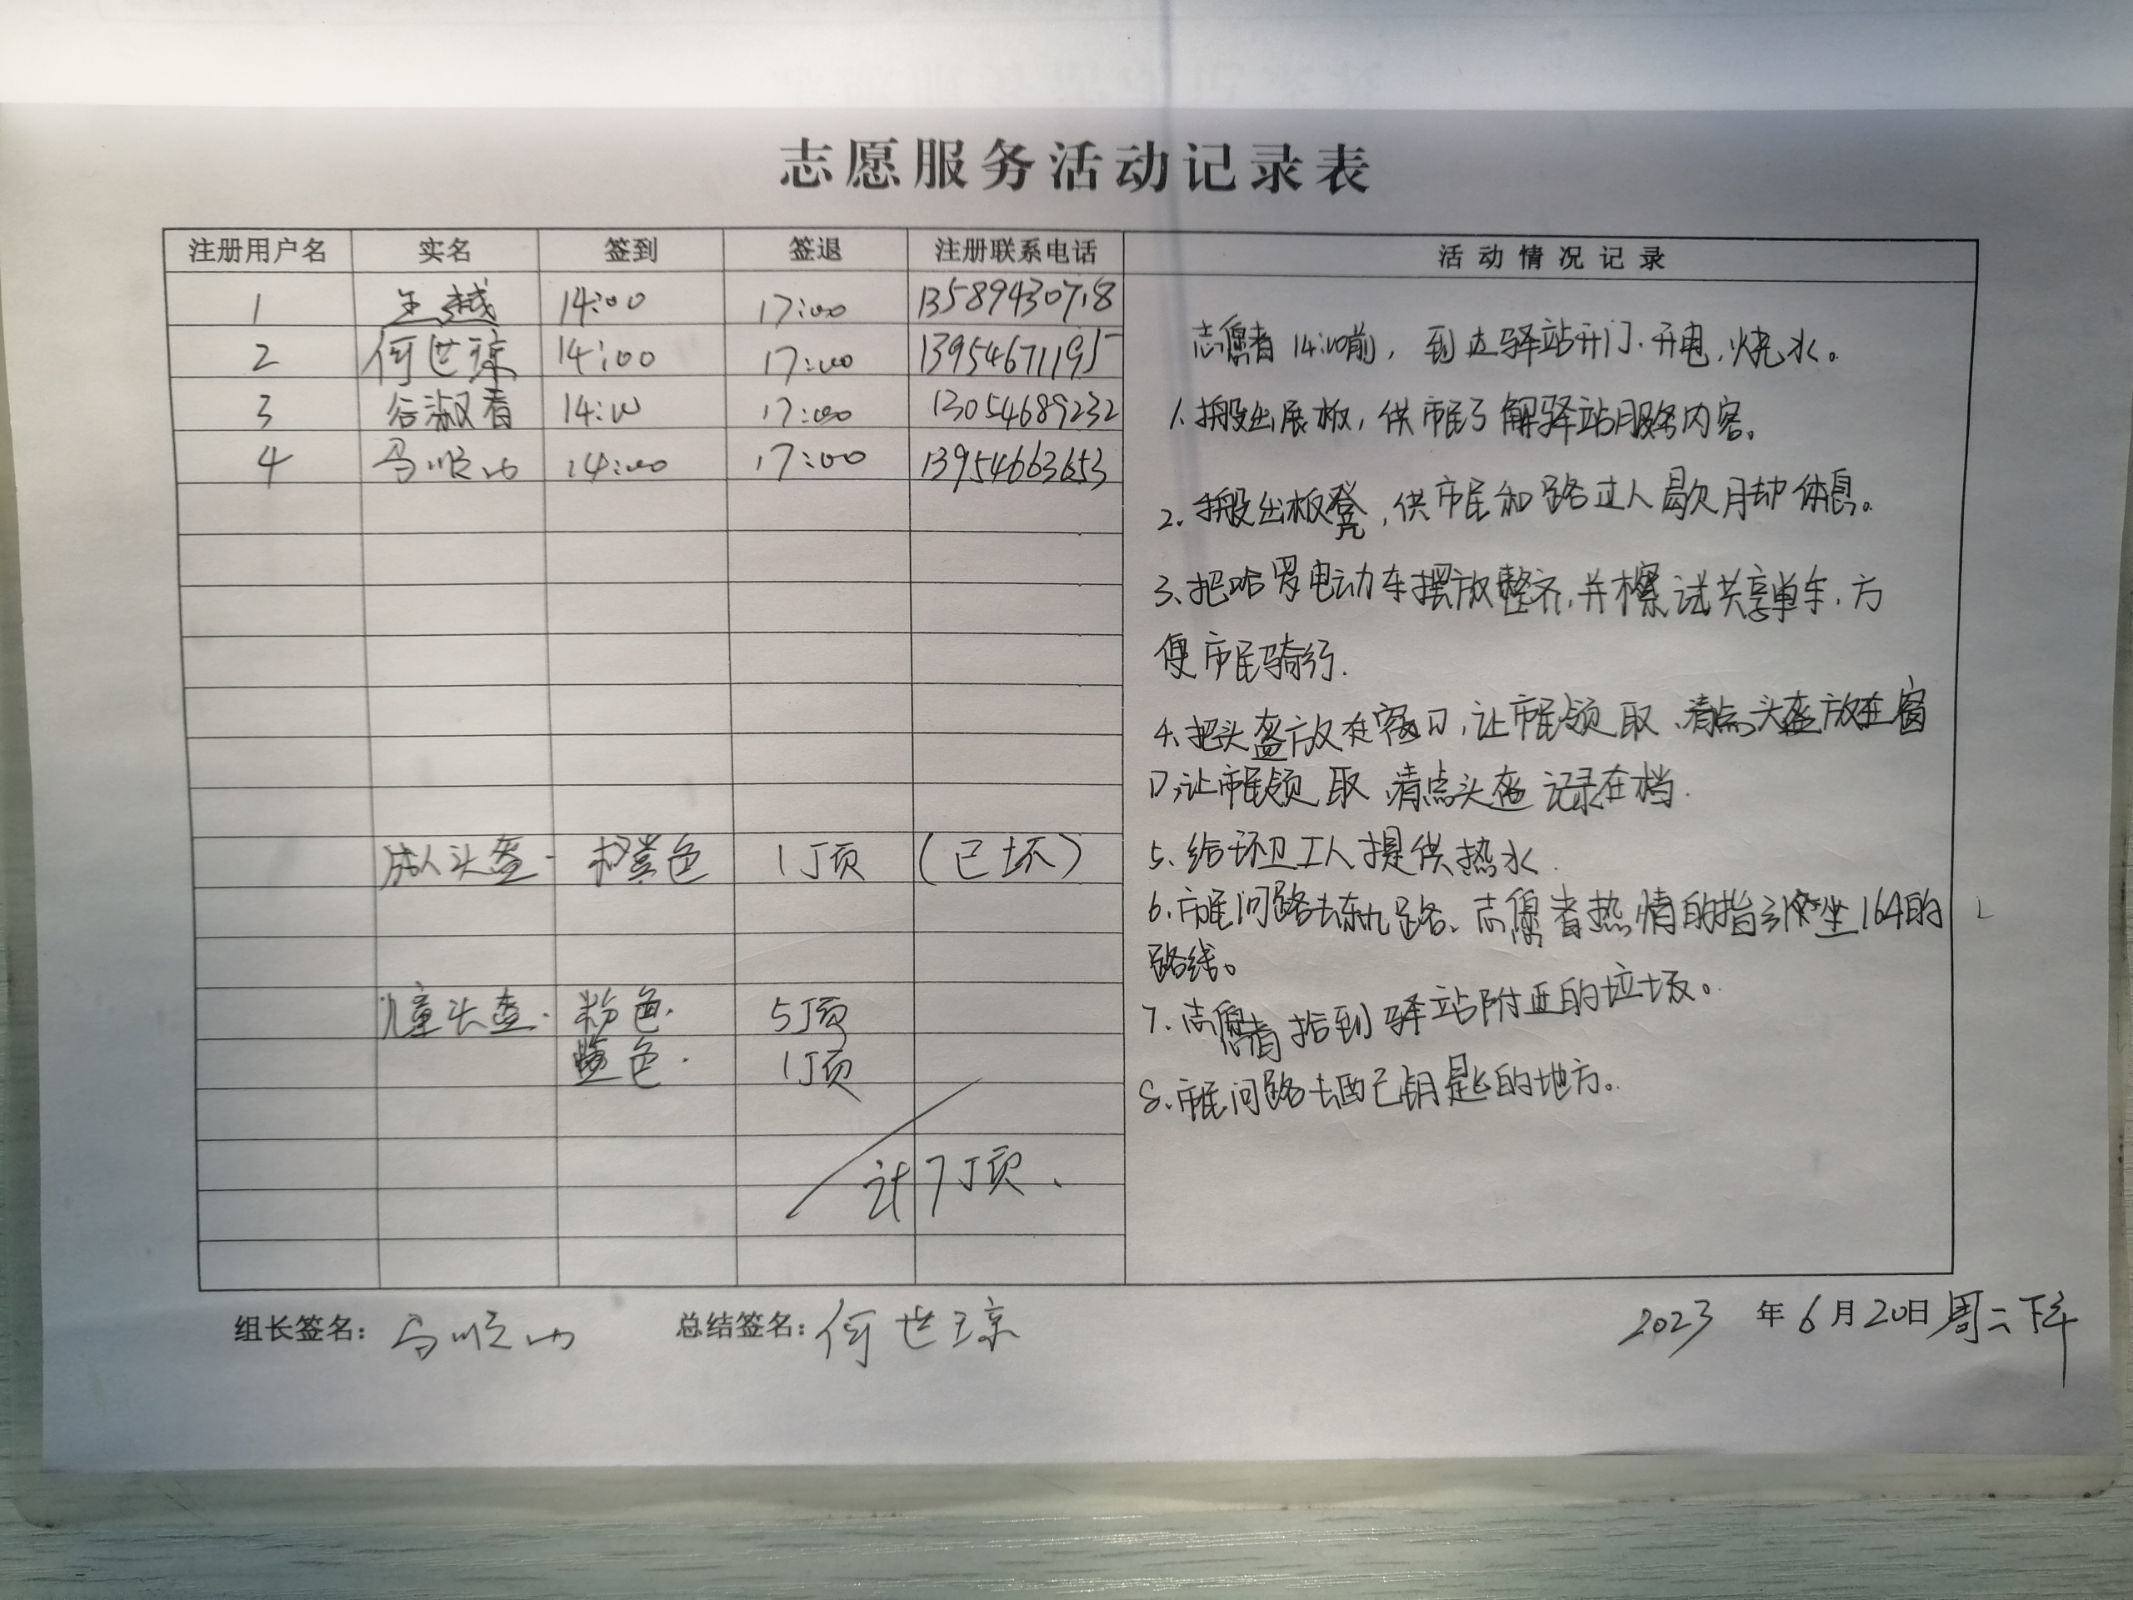 志愿服务活动记录表
注册用户名 实名 签到 签退 注册联系电话 活动情况记录
1 王越 14:00 17:00 13589430718
2 何世琼 14:00 17:00 13954671195
3 谷淑看 14:00 17:00 13054689232
4 马顺 14:00 17:00 13954663653
志愿者14:00前，到达驿站开门.开电,烧水。
1.搬出展板，供市民了解驿站服务内容。
2.搬出板凳,供市民和路过人歇脚休息。
3、把哈罗电动车摆放整齐,并擦试共享单车.方
便市民骑行.
4、把头盔放在窗口,让市民领取、清点头盔放在窗
口,让市民领取、清点头盔记录在档.
5、给环卫工人提供热水.
6.市民问路去东九路、志愿者热情的指引坐164的
路线。
7.志愿者拾到驿站附近的垃圾。
8.市民问路去配钥匙的地方。
成人头盔- 橙黄色 1顶 (已坏)
儿童头盔. 粉色. 5顶
蓝色. 1顶
计7顶、
组长签名: 马顺 总结签名: 何世琼 2023年6月20日周二下午